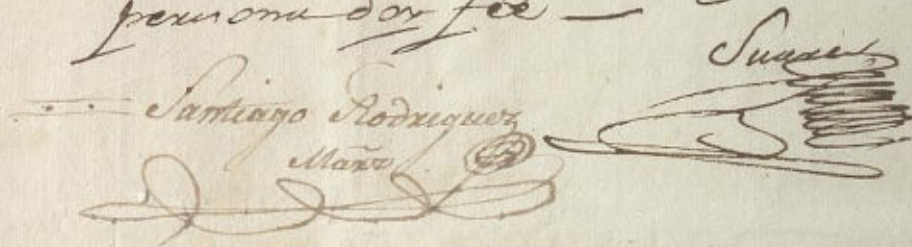 persona doy fee
Suarez
Santiago Rodriguez
Mañz